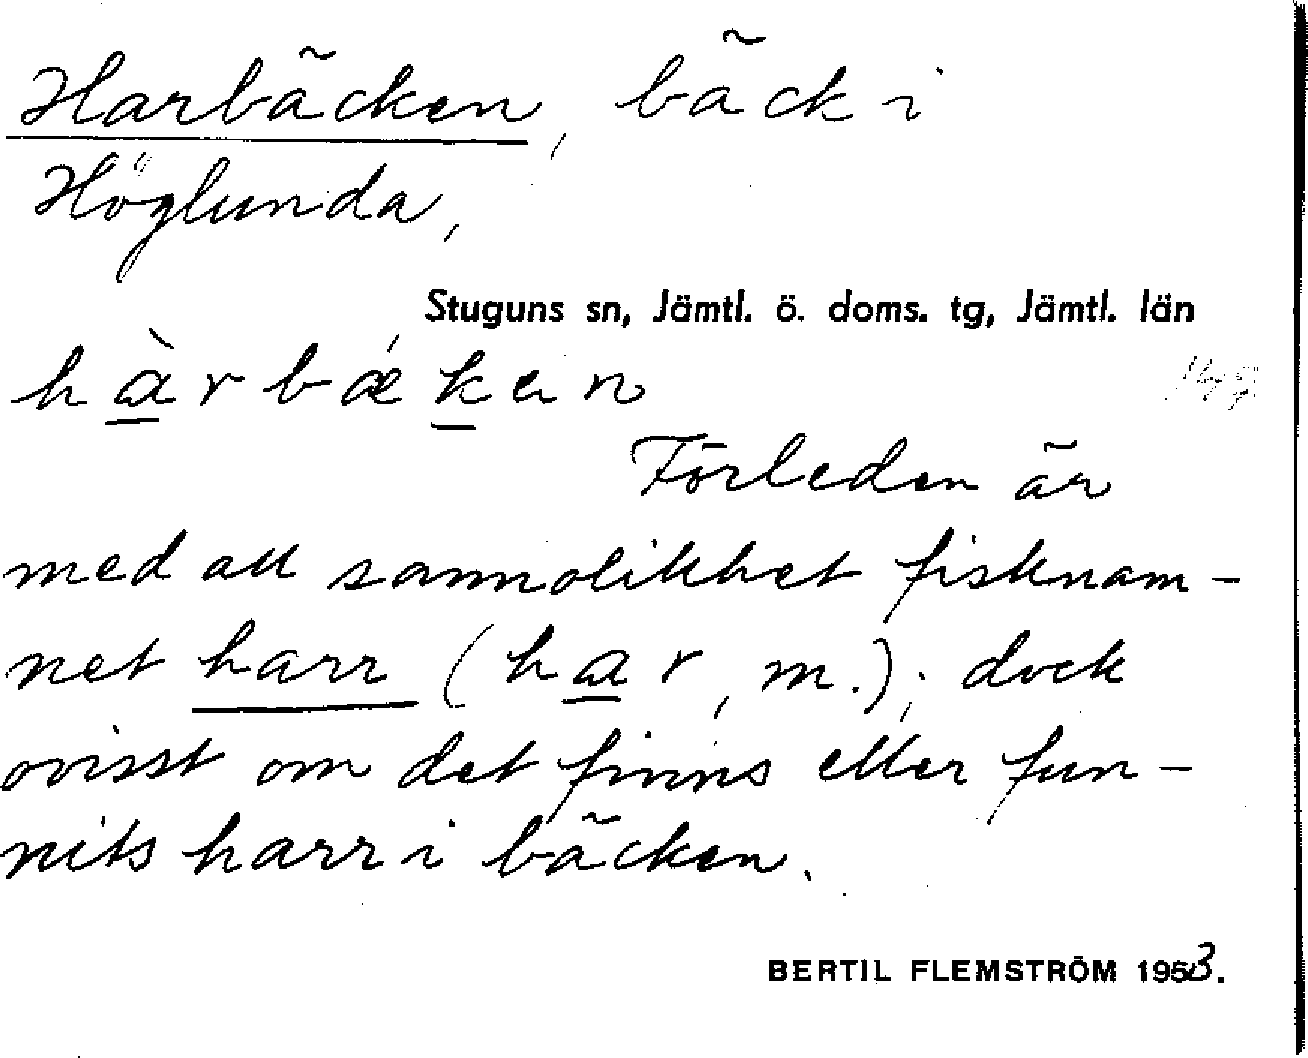 Harbäcken, bäck i
Höglunda,
Stuguns sn, Jämtl. ö. doms. tg, Jämtl. län
hàrbǽken
Förleden är
med all sannolikhet fisknam-
net harr (har, m.); dock
ovisst om det finns eller fun-
nits harr i bäcken.
BERTIL FLEMSTRÖM 1953.